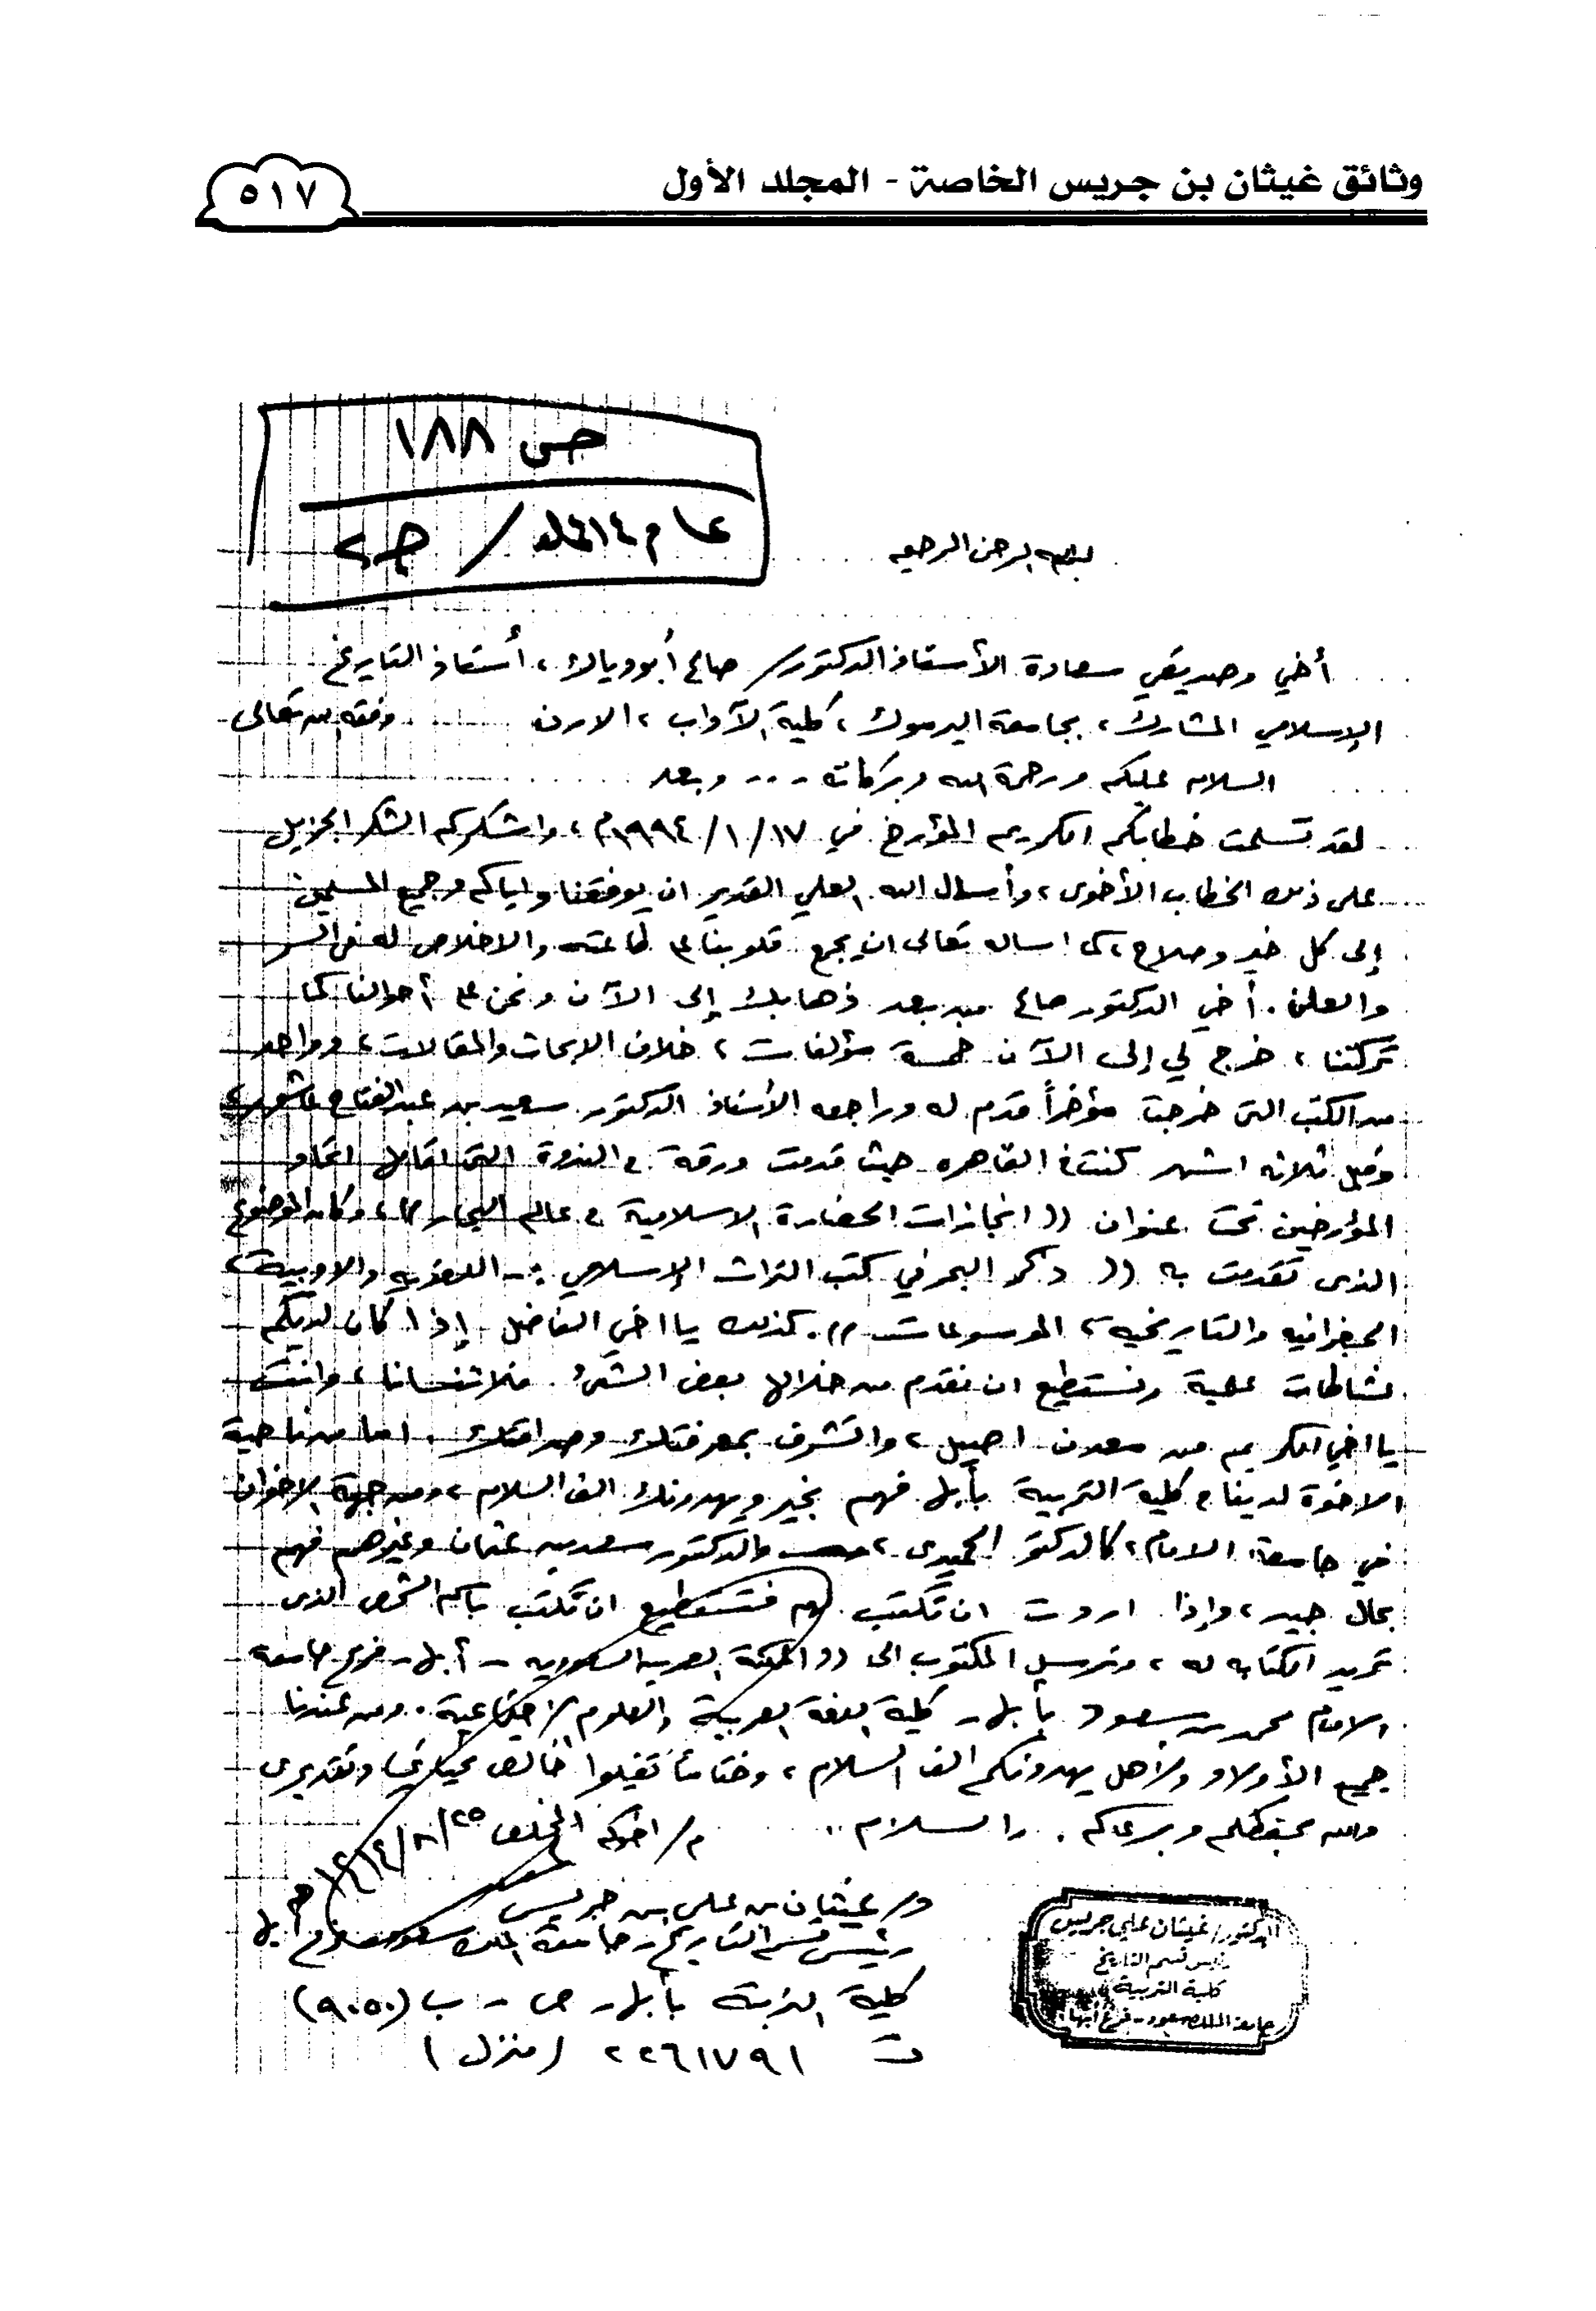 وثائق غيثان بن جريس الخاصة - المجلد الأول
٥١٧
ص ١٨٨
عام ١٤١٤هـ / ج٢
بسم الله الرحمن الرحيم
أخي وصديقي سعادة الأستاذ الدكتور/ صالح أبودياك، أستاذ التاريخ
الإسلامي المشارك، بجامعة اليرموك، كلية الآداب، الاردن وفقه الله تعالى
السلام عليكم ورحمة الله وبركاته ... وبعد
لقد تسلمت خطابكم الكريم المؤرخ في ١٧/١/١٩٩٤م، واشكركم الشكر الجزيل
على ذلك الخطاب الأخوى، وأسال الله العلي القدير ان يوفقنا واياكم وجميع المسلمين
إلى كل خير وصلاح، كما اساله تعالى ان يجمع قلوبنا على طاعته والاخلاص له في السر
والعلن. أخي الدكتور صالح من بعد ذهابك إلى الآن ونحن على أحوالنا كما
تركتنا، خرج لي إلى الآن خمسة مؤلفات، خلاف الابحاث والمقالات، وواحد
من الكتب التى خرجت مؤخراً قدم له وراجعه الأستاذ الدكتور سعيد بن عبدالفتاح عاشور،
وقبل ثلاثه اشهر كنت في القاهره حيث قدمت ورقة في الندوة التى اقامها اتحاد
المؤرخين تحت عنوان (( انجازات الحضارة الاسلامية في عالم البحار ))، وكان الموضوع
الذى تقدمت به (( ذكر البحر في كتب التراث الإسلامي :- اللغويه والادبية،
الجغرافيه والتاريخيه، الموسوعات )). كذلك يا اخي الفاضل إذا كان لديكم
نشاطات علمية ونستطيع ان نقدم من خلالها بعض الشئ فلا تنسانا، وانت
يا اخي الكريم من معدن اصيل، واتشرف بمعرفتك وصداقتك. اما من ناحية
الاخوة لدينا في كلية التربية بأبها فهم بخير ويهدونك الف السلام، ومن جهة الاخوان
في جامعة الامام، كالدكتور الحميدى، والدكتور سعد بن عثمان وغيرهم فهم
بحال جيد، وإذا اردت ان تكتب لهم فتستطيع ان تكتب باسم الشخص الذى
تريد الكتابه له، وترسل المكتوب الى (( المملكة العربيه السعوديه - أبها - فرع جامعة
الامام محمد بن سعود بأبها - كلية اللغة العربية والعلوم الاجتماعية. ومن عندنا
جميع الأولاد والأهل يهدونكم الف السلام، وختاماً تقبلوا خالص تحياتي وتقديرى
والله يحفظكم ويرعاكم. والسلام ..
م/ اخوكم المخلص ٢٥/٨/١٤١٤هـ
د/ غيثان بن علي بن جريس
رئيس قسم التاريخ - جامعة الملك سعود فرع أبها
كلية التربية بأبها - ص - ب (٩٠٥٠)
ت ٢٢٦١٧٩١ (منزل)
الدكتور/ غيثان علي جريس
رئيس قسم التاريخ
كلية التربية
جامعة الملك سعود - فرع أبها